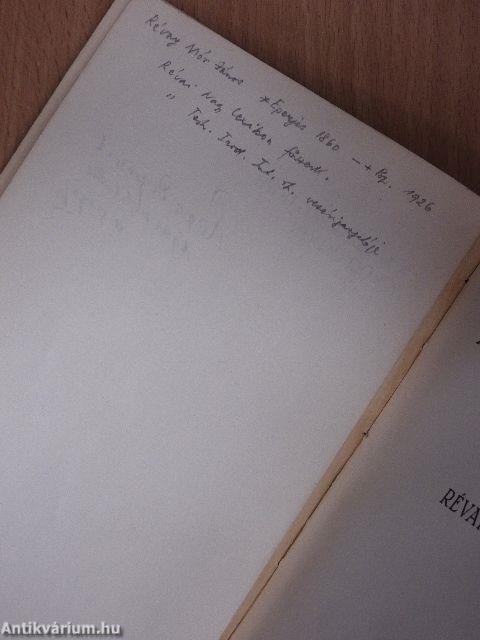 Révay Mór János *Eperjes 1860 – + Bp. 1926
Révai Nagy Lexikon főszerk.
" Test. Irod. Int. rt. vezérigazgatója
RÉVAI
Antikvárium.hu